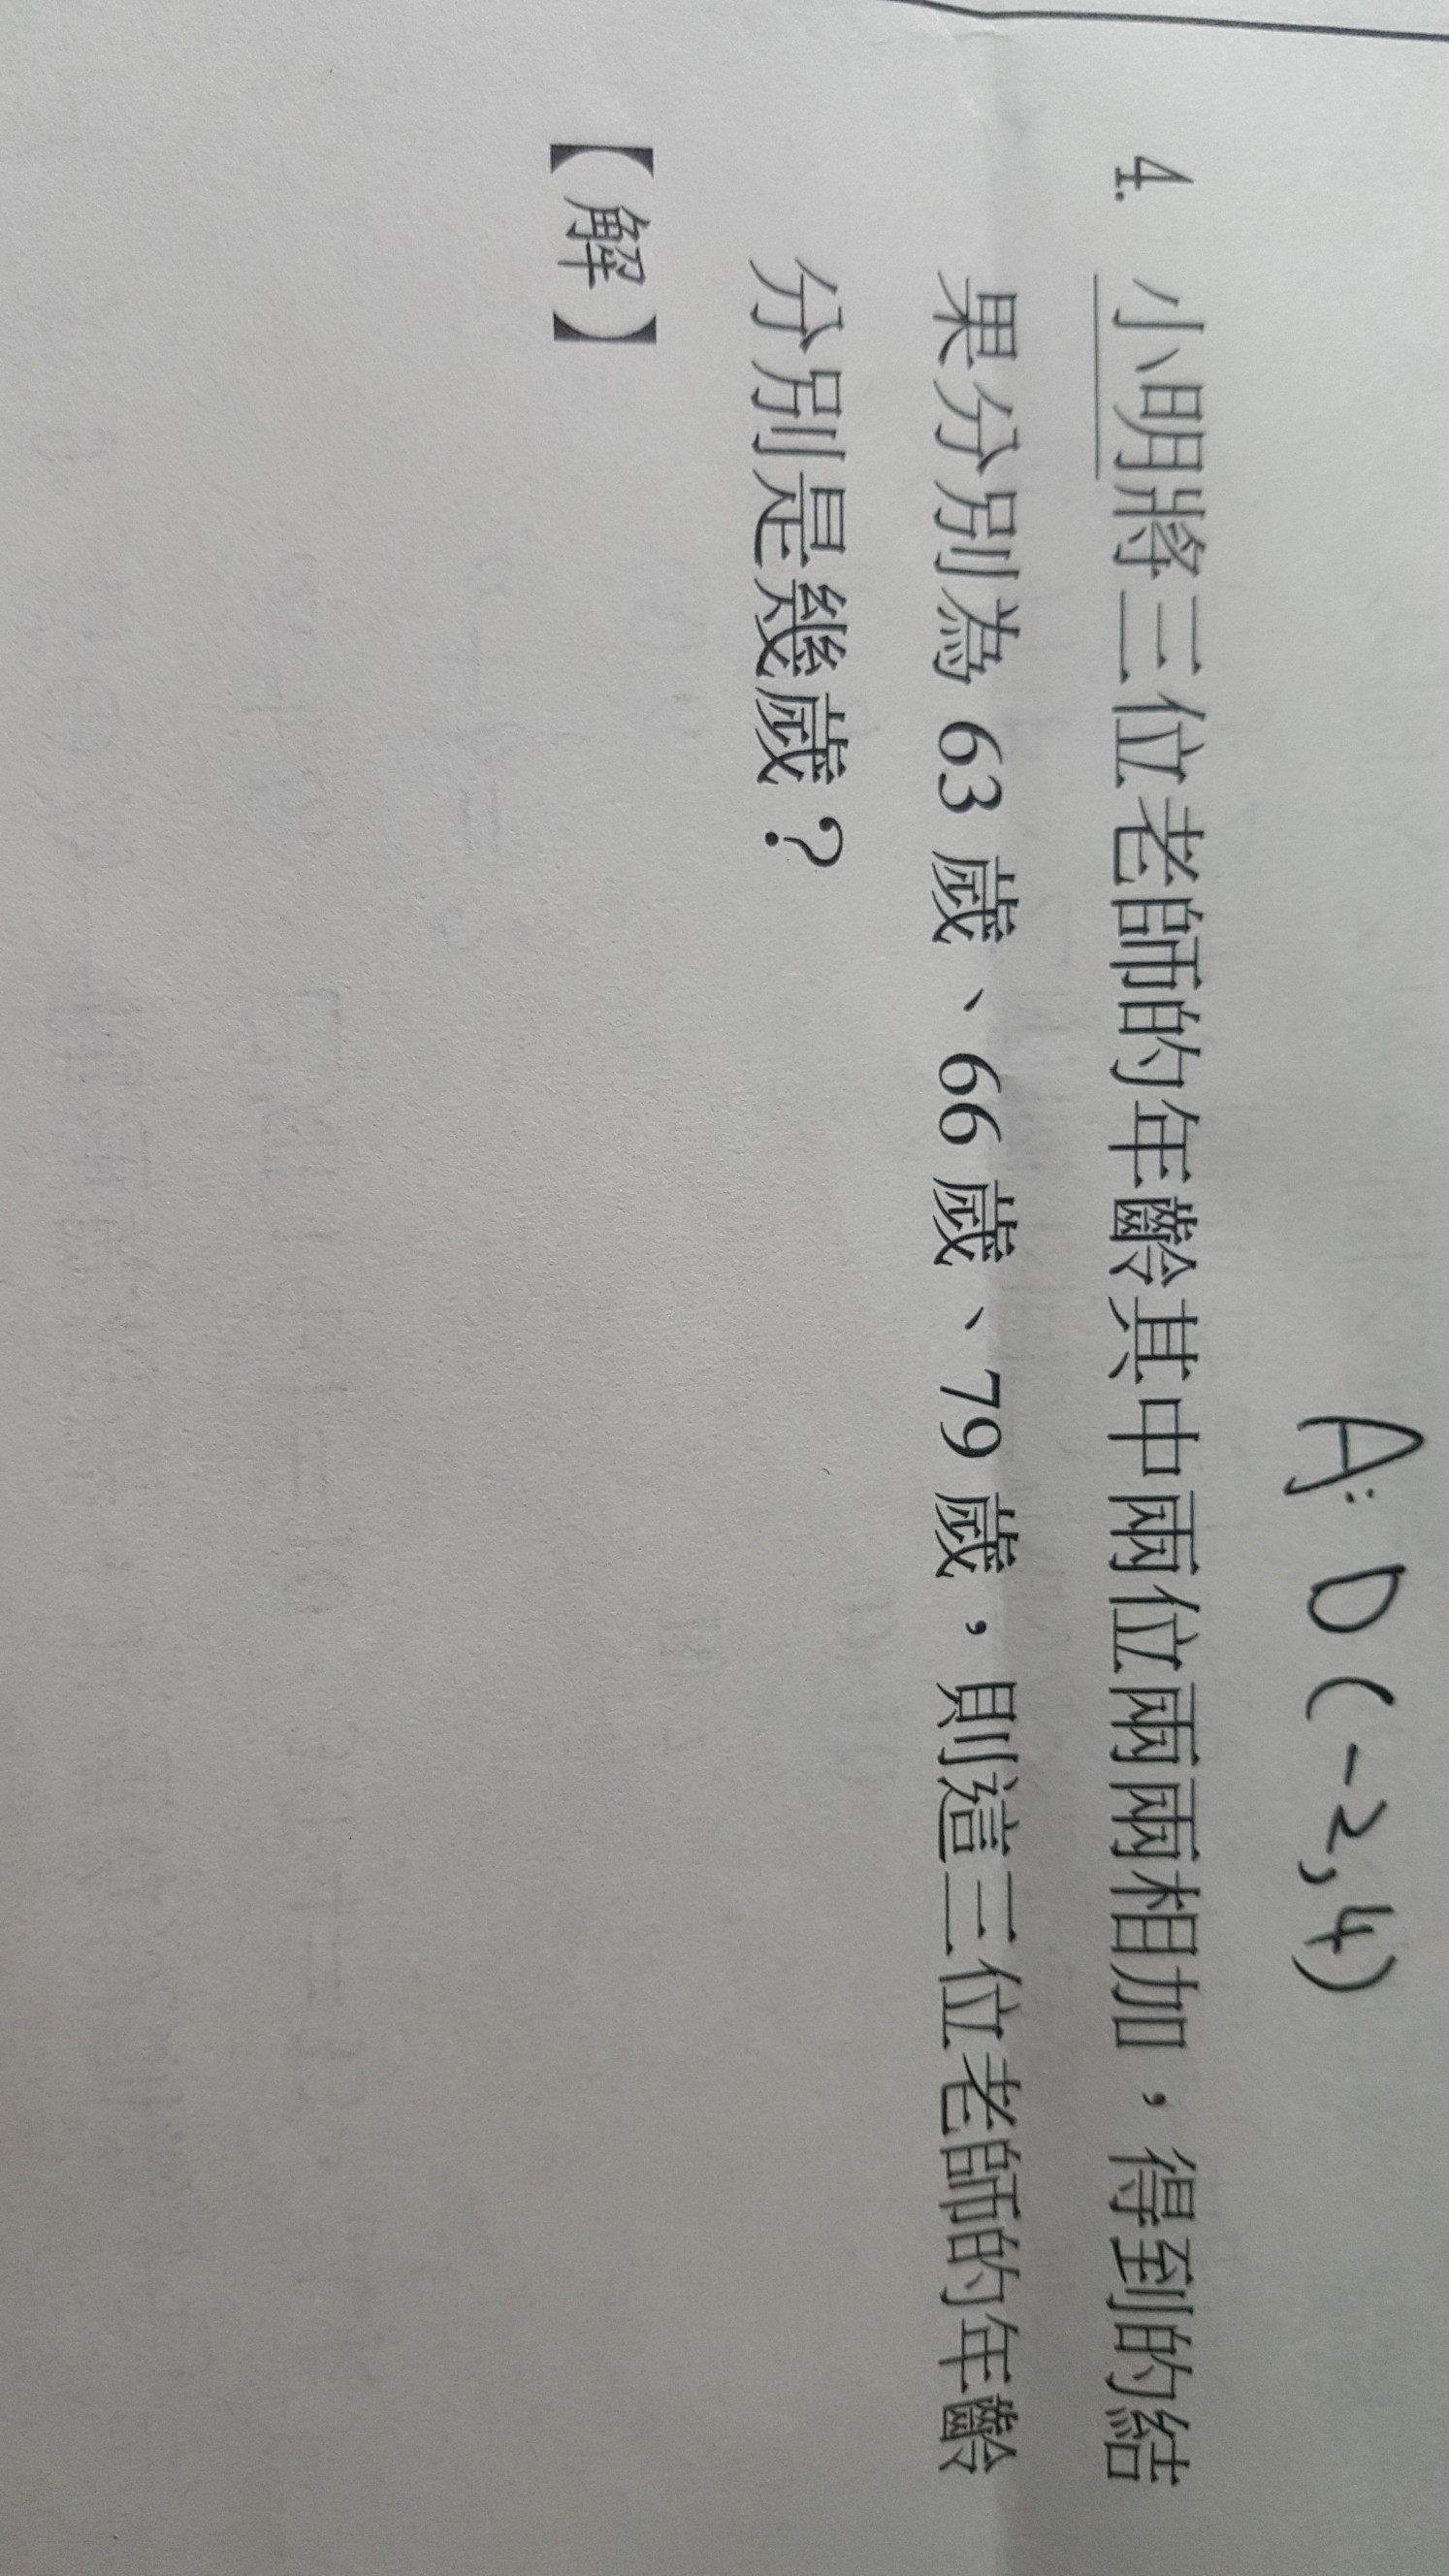 A: D(-2,4)
4. 小明將三位老師的年齡其中兩位兩兩相加,得到的結
果分別為 63 歲、66 歲、79 歲,則這三位老師的年齡
分別是幾歲?
【解】